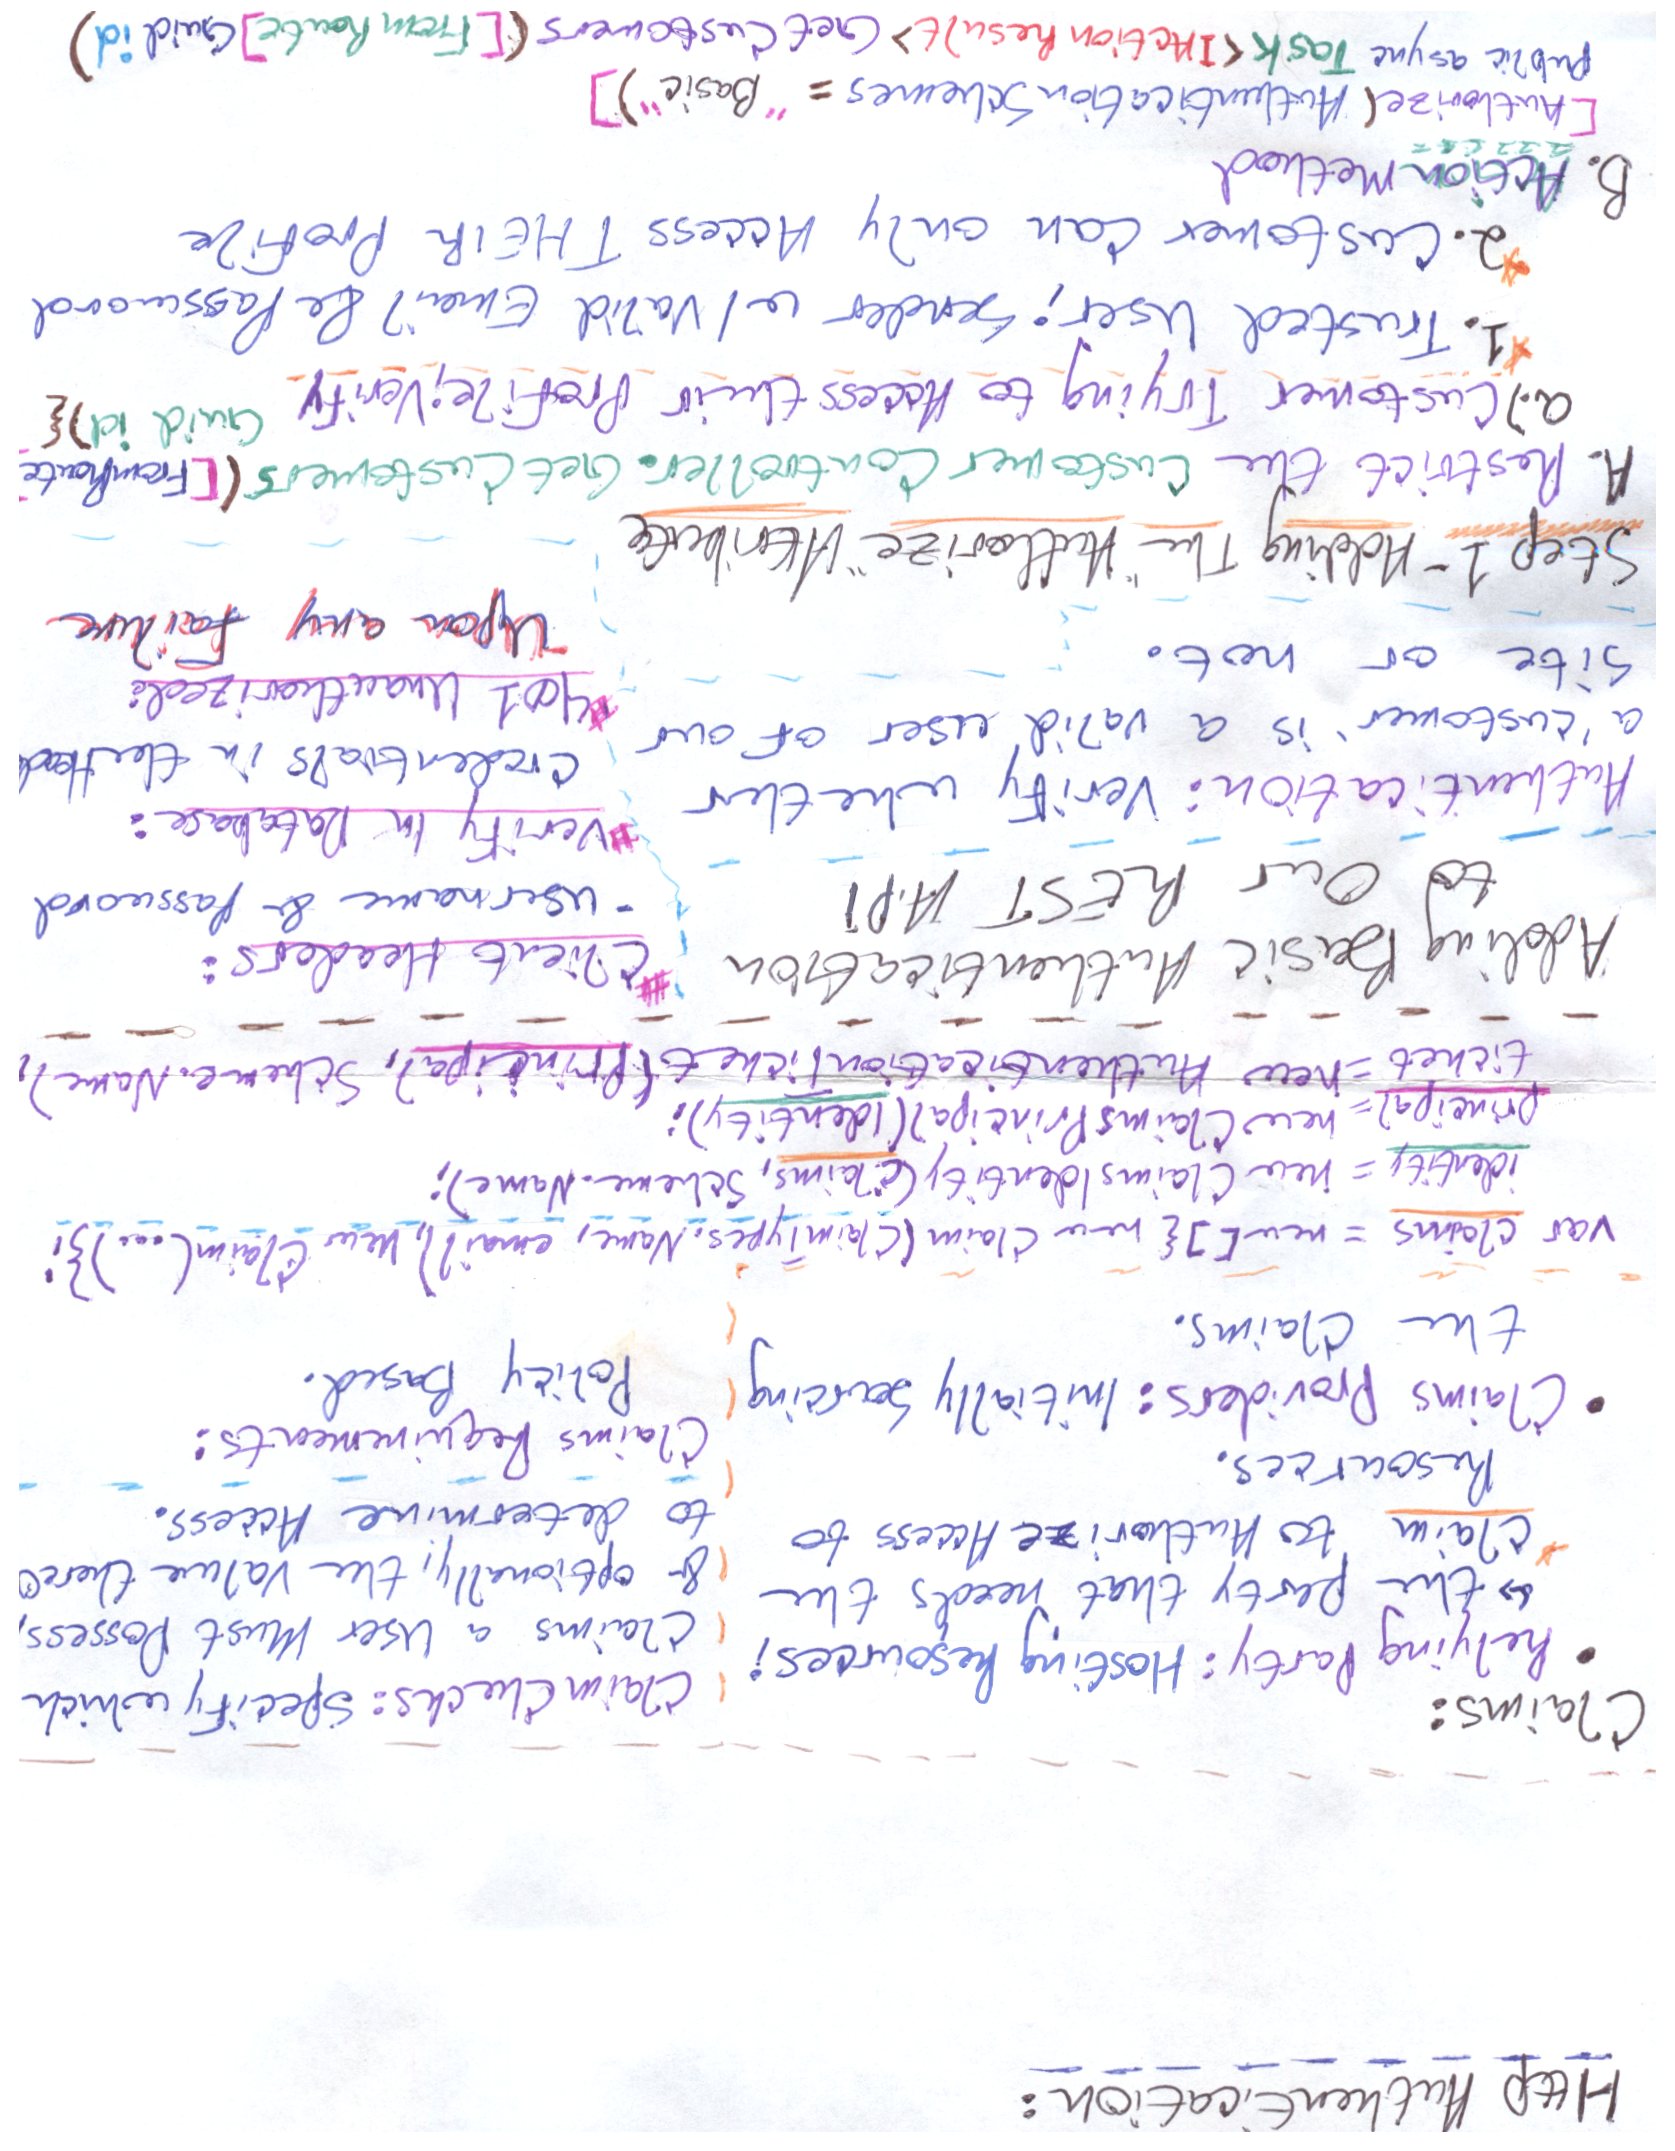 Http Authentication:
Claims:
• Relying Party: Hosting Resources;
↳ the party that needs the
* Claim to Authorize Access to
Resources.
• Claims Providers: Initially Sourcing
the Claims.
Claim Checks: Specify which
Claims a User Must Possess,
& optionally, the Value thereo
to determine Access.
Claims Requirements:
Policy Based.
var claims = new[]{ new Claim(ClaimTypes.Name, email), new Claim(...)};
identity = new ClaimsIdentity(claims, Scheme.Name);
principal = new ClaimsPrincipal(Identity);
ticket = new AuthenticationTicket(Principal, Scheme.Name),
Adding Basic Authentication
to Our REST API
Authentication: Verify whether
a 'customer' is a valid user of our
site or not.
# Client Headers:
- username & Password
# Verify In Database:
Credentials in the Head
# 401 Unauthorized:
Upon any Failure
Step 1 - Adding The "Authorize" Attribute
A. Restrict the CustomerController.GetCustomers([FromRoute]
Guid id){
a.) Customer Trying to Access their Profile; Verify
* 1. Trusted User; Sender w/ Valid Email & Password
* 2. Customer Can only Access THEIR Profile
B. Action Method
[Authorize(AuthenticationSchemes = "Basic")]
public async Task<IActionResult> GetCustomers([FromRoute]Guid id)